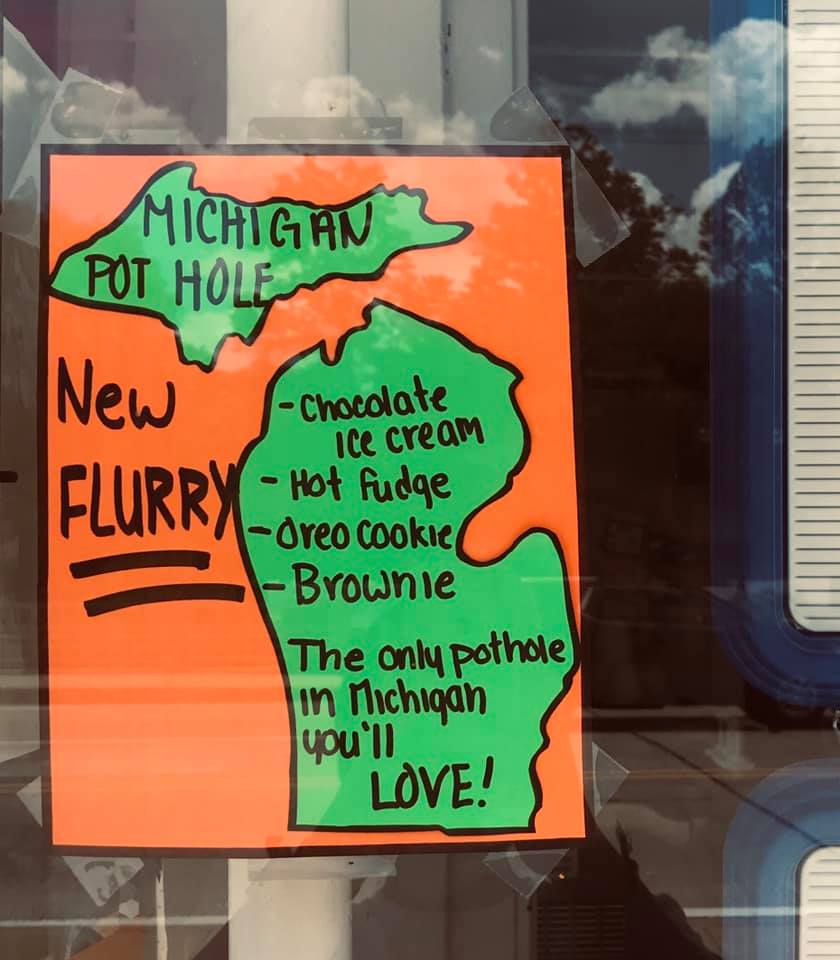 MICHIGAN
POT HOLE
New
FLURRY
- Chocolate
Ice cream
- Hot fudge
- Oreo cookie
- Brownie
The only pothole
in Michigan
you'll
LOVE!